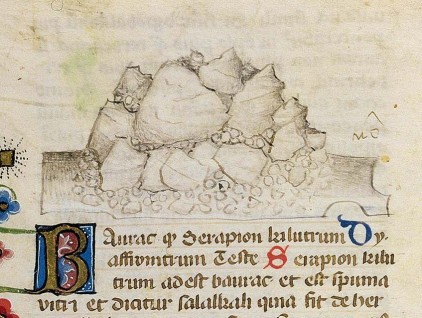 Baurac q Serapion kilutrum Dy
assiuntrum Teste Serapion kilu
trum ad est baurac et est spuma
vitri et dicitur salalkali quia fit de her